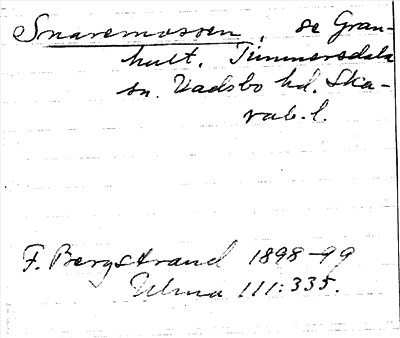 Snaremossen, se Gran-
hult, Timmersdala
sn. Vadsbo hd. Ska-
rab. l.
F. Bergstrand 1898-99
Ulma 111:335.